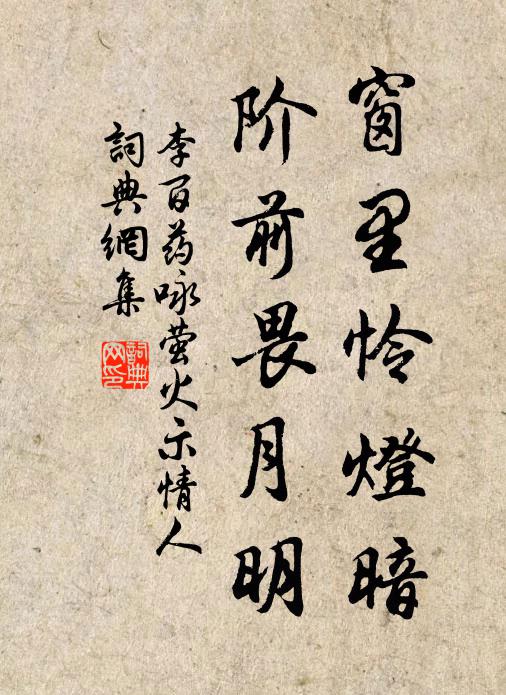 窗里怜燈暗
阶前畏月明
李百药咏萤火示情人
詞典網集
詞典网印